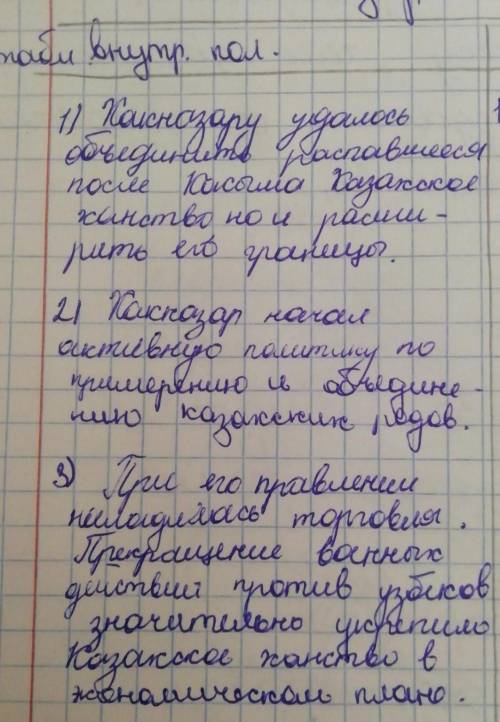 внутр. пол.
1) Хакназару удалось
объединить распавшееся
после Касыма Казахское
ханство но и расши-
рить его границы.
2) Хакназар начал
активную политику по
примерению и объедине-
нию казахских родов.
3) При его правлении
торговля.
Прекращение военных
действий против узбеков
значительно укрепило
Казахское ханство в
экономическом плане.